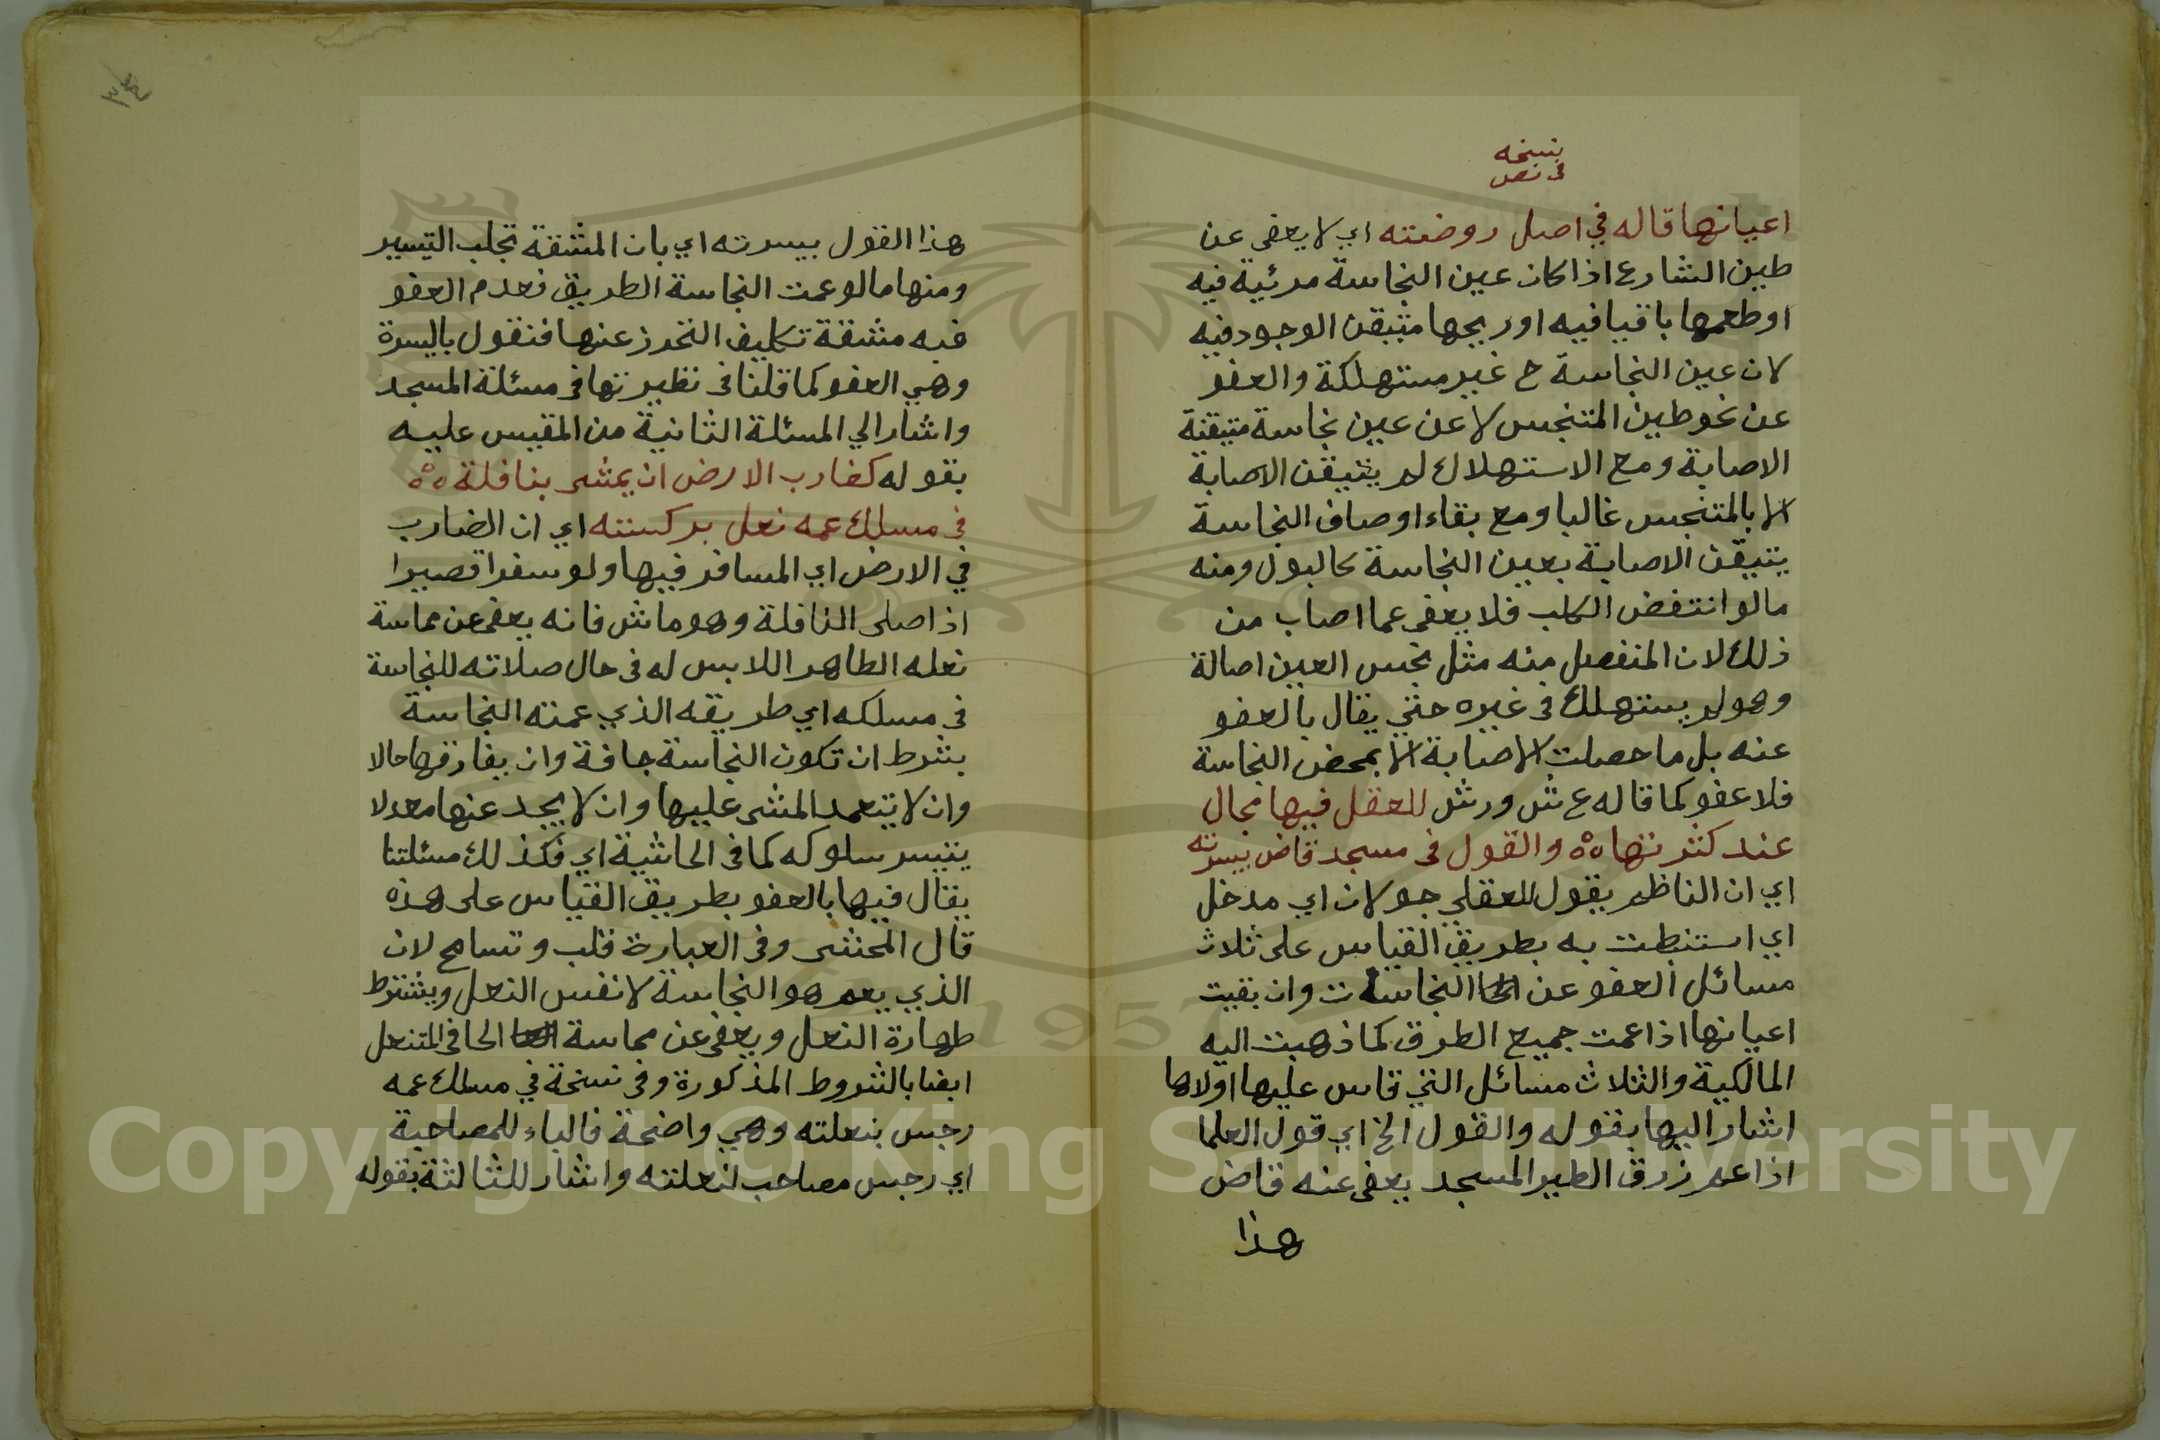 بنسخه
في نص
اعيانها قاله في اصل روضته اي لا يعفى عن
طين الشارع اذا كان عين النجاسة مرئية فيه
اوطعمها باقيا فيه او ريحها متيقن الوجود فيه
لان عين النجاسة ح غير مستهلكة والعفو
عن نحو طين المتنجس لا عن عين نجاسة متيقنة
الاصابة ومع الاستهلاك لم يتيقن الاصابة
الا بالمتنجس غالبا ومع بقاء اوصاف النجاسة
يتيقن الاصابة بعين النجاسة كالبول ومنه
مالو انتفض الكلب فلا يعفى عما اصاب من
ذلك لان المنفصل منه مثل نجس العين اصالة
وهو لم يستهلك في غيره حتي يقال بالعفو
عنه بل ما حصلت الاصابة الا بمحض النجاسة
فلا عفو كما قاله ع ش ورش للعقل فيها مجال
عند كثرتها ٥٥ والقول في مسجد قاض بيسرته
اي ان الناظم يقول للعقلي جولان اي مدخل
اي استنبطت به بطريق القياس على ثلاث
مسائل العفو عن النجاسات وان بقيت
اعيانها اذا عمت جميع الطرق كما ذهبت اليه
المالكية والثلاث مسائل التي قاس عليها اولاها
اشار اليها بقوله والقول الخ اي قول العلما
اذا عم زرق الطير المسجد يعفى عنه قاض
هذا
٣٤
هذا القول بيسرته اي بان المشقة تجلب التيسير
ومنها مالو عمت النجاسة الطريق فعدم العفو
فيه مشقة تكليف التحرز عنها فنقول باليسرة
وهي العفو كما قلنا في نظيرتها في مسئلة المسجد
واشار الي المسئلة الثانية من المقيس عليه
بقوله كضارب الارض ان يمشي بنافلة ٥٥
في مسلك عمه نعل بركسته اي ان الضارب
في الارض اي المسافر فيها ولو سفرا قصيرا
اذا صلى النافلة وهو ماش فانه يعفى عن مماسة
نعله الطاهر اللابس له في حال صلاته للنجاسة
في مسلكه اي طريقه الذي عمته النجاسة
بشرط ان تكون النجاسة جافة وان يفارقها حالا
وان لا يتعمد المشي عليها وان لا يجد عنها معدلا
يتيسر سلوكه كما في الحاشية اي فكذلك مسئلتنا
يقال فيها بالعفو بطريق القياس على هذه
قال المحشي وفي العبارة قلب وتسامح لان
الذي يعم هو النجاسة لا نفس النعل ويشترط
طهارة النعل ويعفى عن مماسة الحافي المتنعل
ايضا بالشروط المذكورة وفي نسخة في مسلك عمه
رجس بنعلته وهي واضحة فالباء للمصاحبة
اي رجس مصاحب لنعلته واشار للثالثة بقوله
Copyright © King Saud University
1957